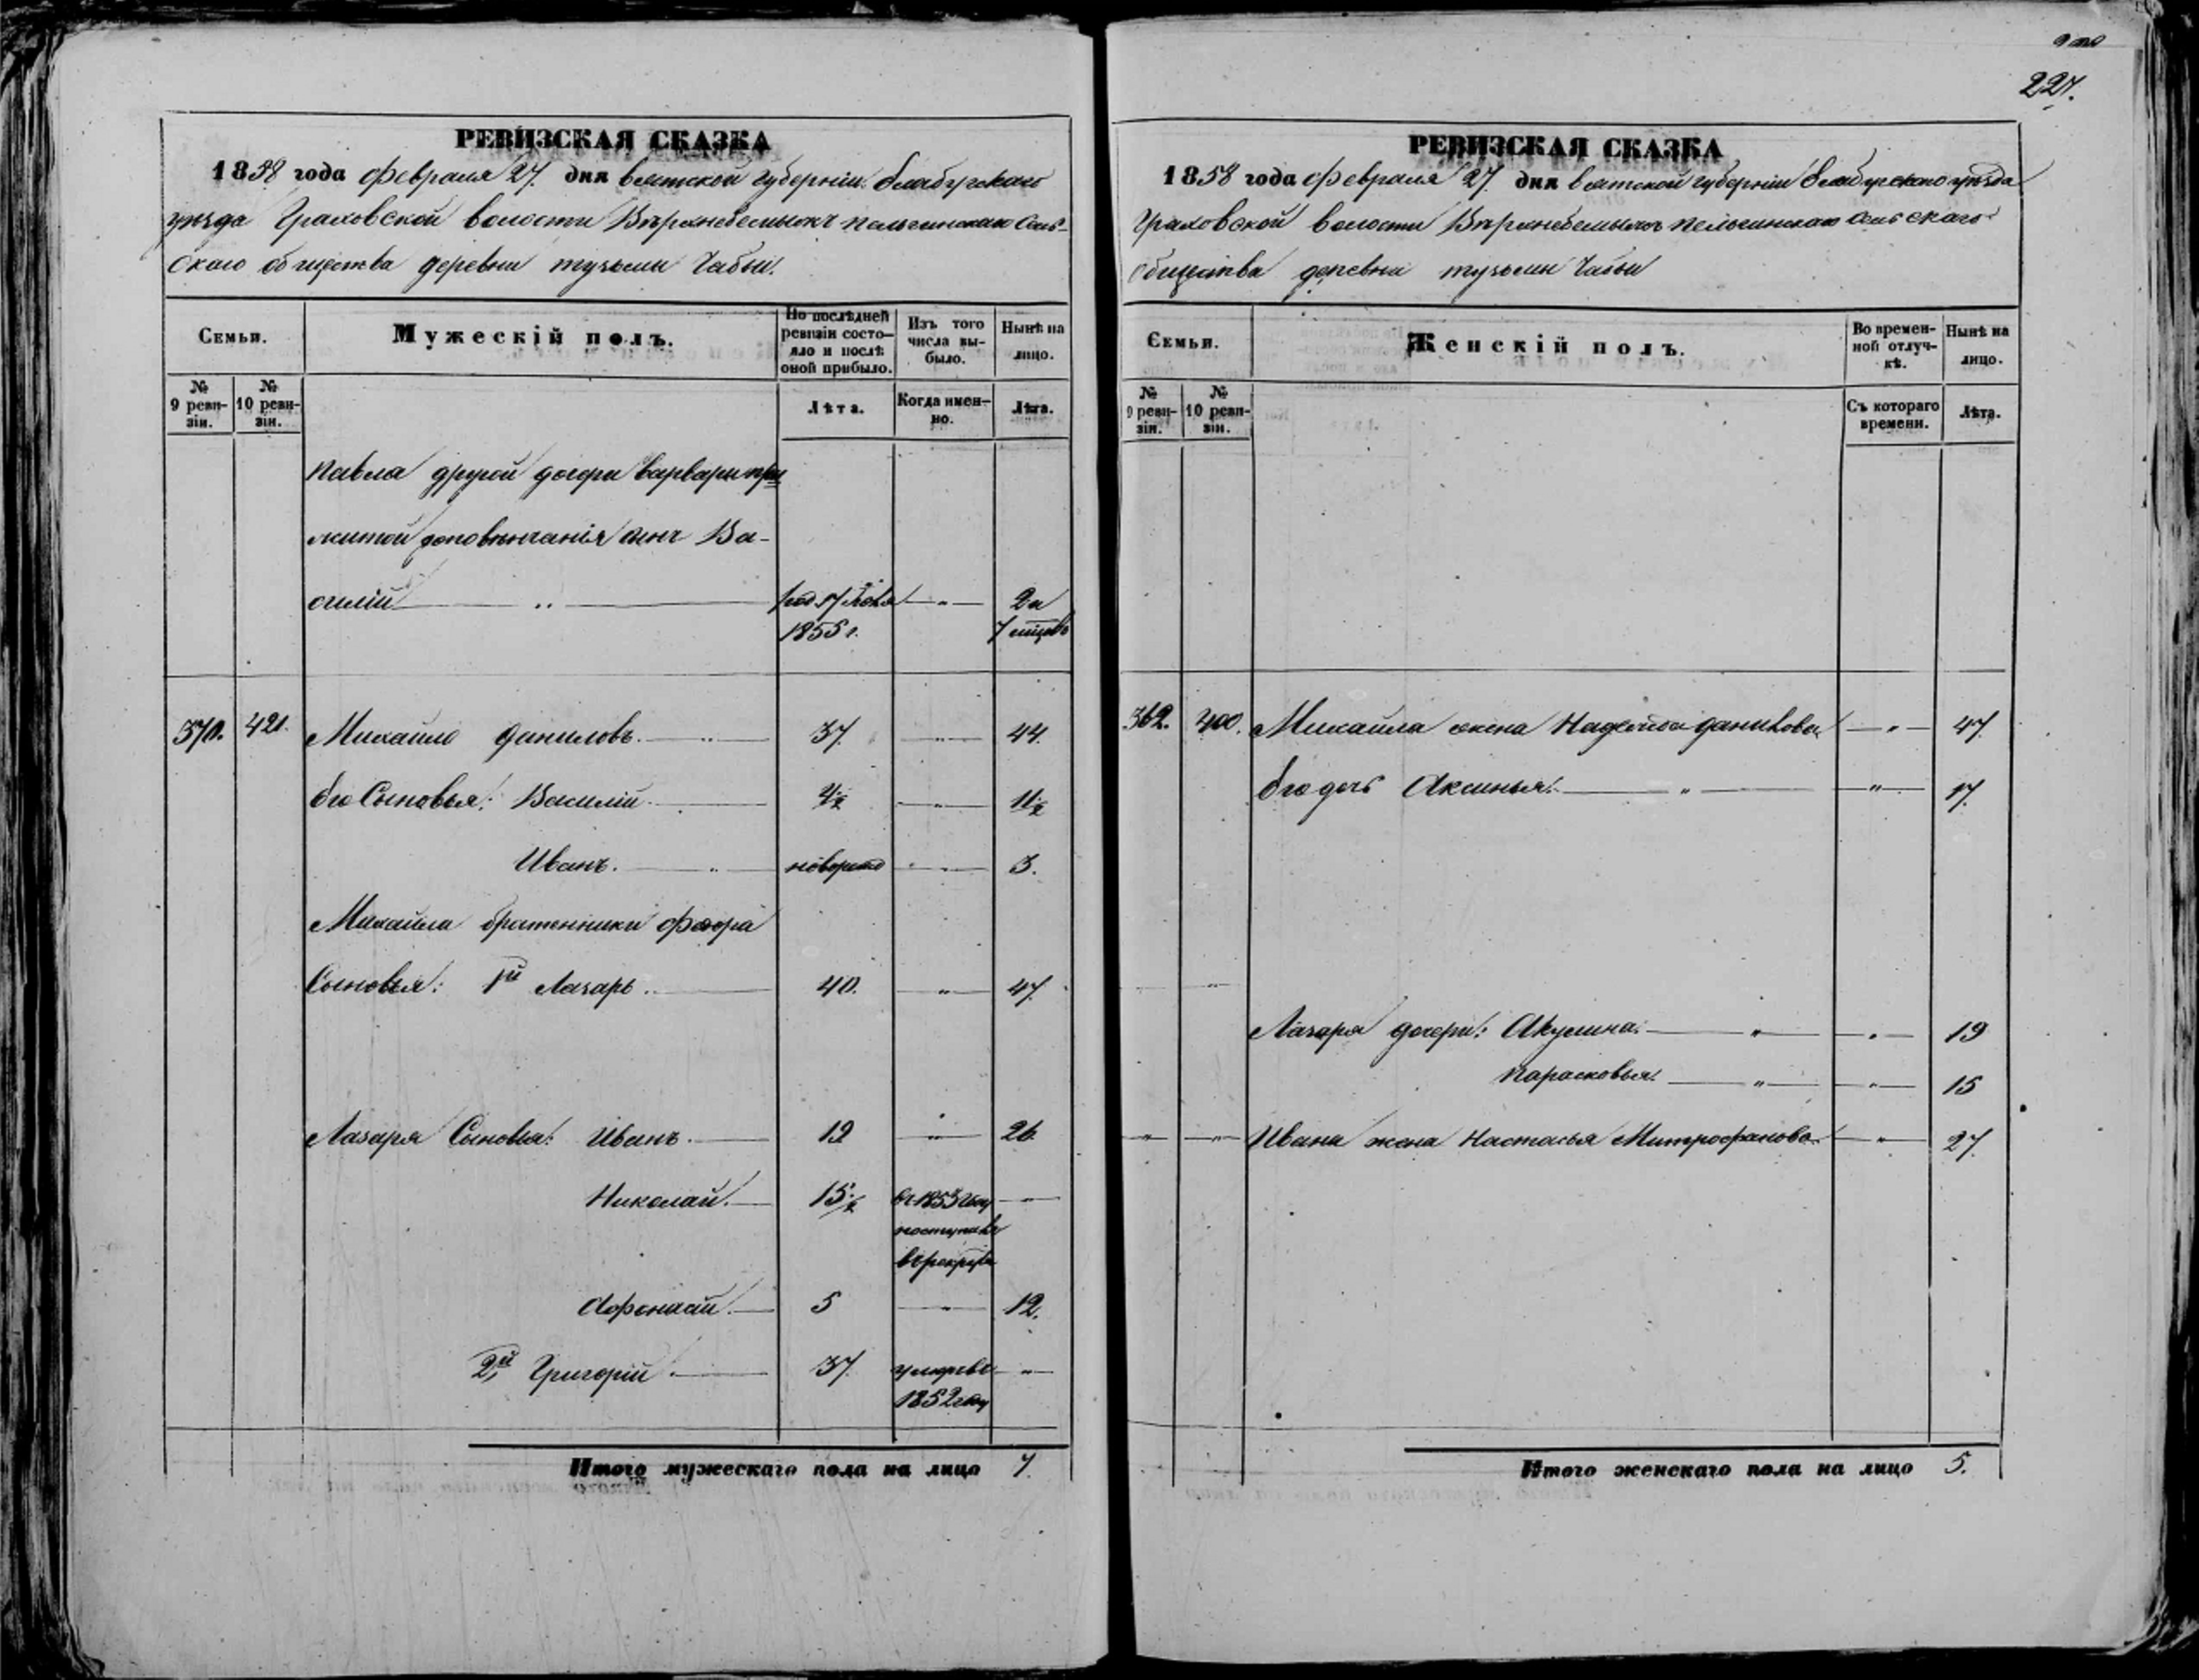 227.
РЕВИЗСКАЯ СКАЗКА
1858 года февраля 27. дня вятской губерніи Елабугскаго
уѣзда Граховской волости Верхнебемыжъ пельгинскаго Сель-
скаго общества деревни тузьмы Чабьи.
Семьи.
Мужескій полъ.
По послѣдней ревизіи состояло и послѣ оной прибыло.
Изъ того числа выбыло.
Нынѣ на лицо.
№ 9 ревизіи.
№ 10 ревизіи.
Лѣта.
Когда именно.
Лѣта.
Павла другой дочери Варвары при
житой доповѣнчанія сынъ Ва-
силій " род. 1855 г. " 2 и 7 мѣсяцовъ
370. 421. Михайло Даниловъ. " 37. " 44.
Его Сыновья: Василій. 4½ " 11½
Иванъ. " новорожд " 3.
Михайла братенники Федора
Сыновья: 1й Лазарь. 40. " 47.
Лазаря Сыновья: Иванъ. 19 " 26.
Николай. 15½ въ 1853 году "
поступилъ
въ рекруты
Афонасій. 5 " 12.
2й Григорій. 37. умеръ въ "
1852 году
Итого мужескаго пола на лицо 7.
РЕВИЗСКАЯ СКАЗКА
1858 года февраля 27. дня вятской губерніи Елабугскаго уѣзда
Граховской волости Верхнебемыжъ пельгинскаго сельскаго
общества деревни тузьмы Чабьи
Семьи.
Женскій полъ.
Во временной отлучкѣ.
Нынѣ на лицо.
№ 9 ревизіи.
№ 10 ревизіи.
Съ котораго времени.
Лѣта.
362. 400. Михайла жена Надежда Данилова " 47.
Его дочь Аксинья. " " 17.
Лазаря дочери: Акулина. " " 19
Парасковья. " " 15
" " Ивана жена Настасья Митрофанова " 27.
Итого женскаго пола на лицо 5.